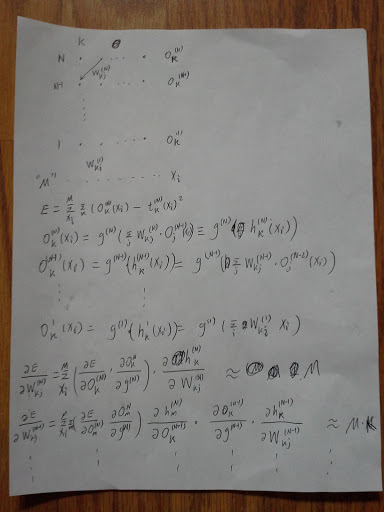 k
N . . ... . O_k^(N)
W_kj^(N)
N-1 . . . . . O_k^(N-1)
1 . . ... . O_k^(1)
W_kj^(1)
"M" . . . . . X_i
E = Σ_{X_i}^M Σ_k (O_k^(N)(X_i) - t_k^(N)(X_i)^2
O_k^(N)(X_i) = g^(N)(Σ_j W_kj^(N) · O_j^(N-1)(X_i)) ≡ g^(N)(h_k^(N)(X_i))
O_k^(N-1)(X_i) = g^(N-1)(h_k^(N-1)(X_i)) = g^(N-1)(Σ_j W_kj^(N-1) · O_j^(N-2)(X_i))
O_k^1(X_i) = g^(1)(h_k^1(X_i)) = g^(1)(Σ_i W_ki^(1) X_i)
∂E/∂W_kj^(N) = Σ_{X_i}^M (∂E/∂O_k^(N) · ∂O_k^N/∂g^(N)) · ∂h_k^(N)/∂W_kj^(N) ≈ M
∂E/∂W_kj^(N-1) = Σ_{X_i} Σ_m (∂E/∂O_m^(N) · ∂O_m^N/∂g^(N)) ∂h_m^(N)/∂O_k^(N-1) · ∂O_k^(N-1)/∂g^(N-1) · ∂h_k^(N-1)/∂W_kj^(N-1) ≈ M·K